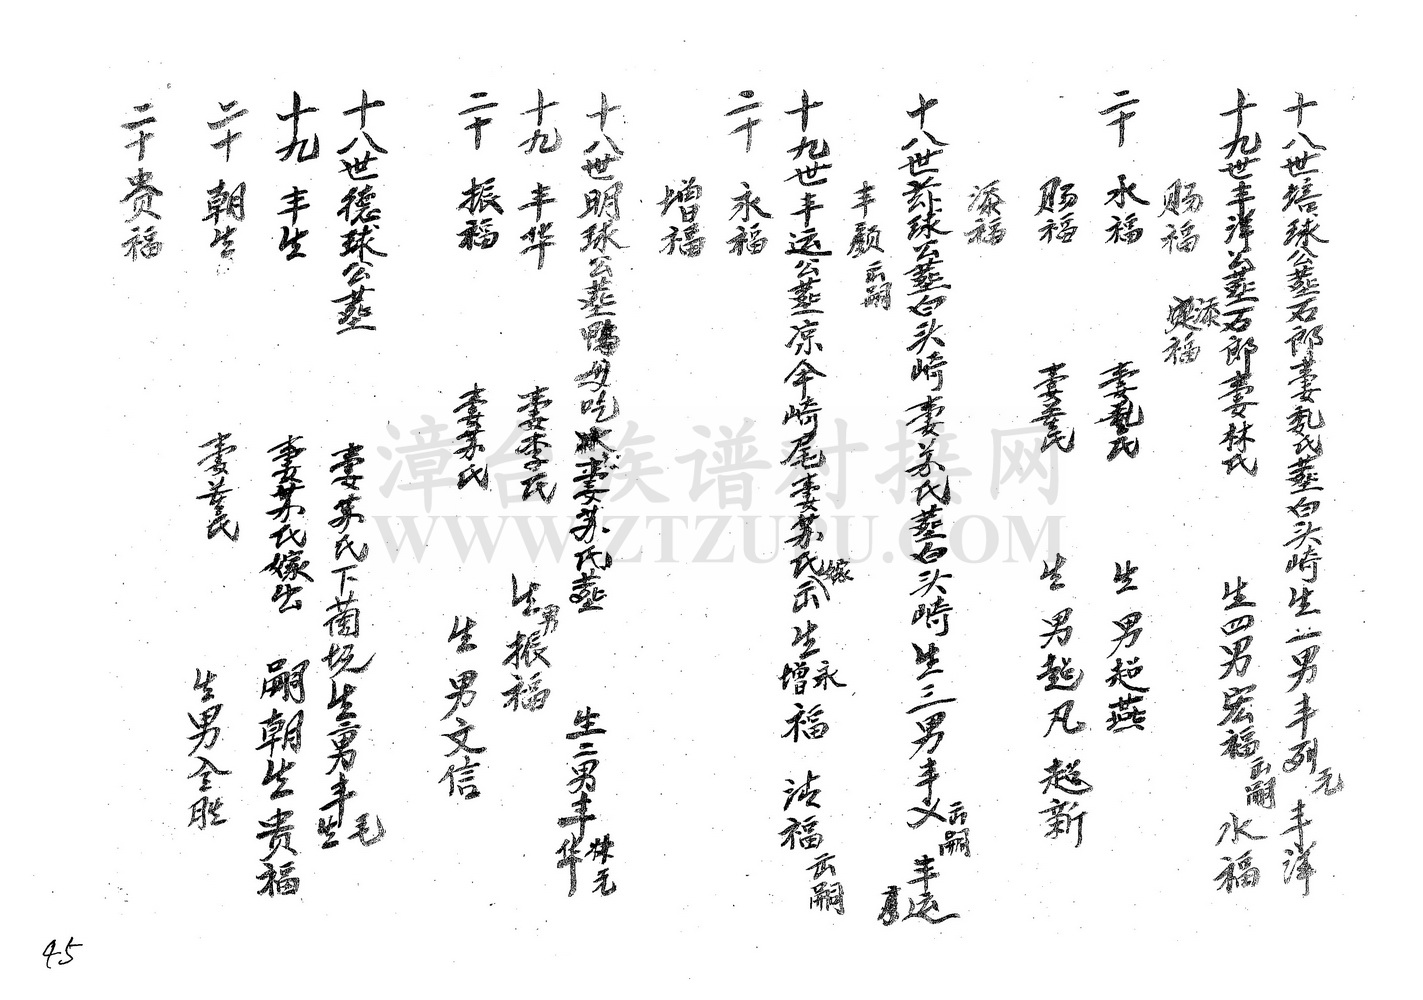 十八世培球公墓石郎妻甄氏墓白头崎生二男丰列无丰洋
十九世丰洋公墓石郎妻林氏 生四男宏福 嗣永福
赐福 添福
二十 永福 妻甄氏 生男超燕
赐福 妻姜氏 生男超凡 超新
添福
十八世 球公墓白头崎妻苏氏墓白头崎生三男丰义 嗣丰运
丰愿 嗣
十九世丰运公墓凉伞崎尾妻苏氏嫁出生永福增福 福 嗣
二十 永福
增福
十八世明球公墓鸭母吃水妻苏氏墓 生二男丰华 无
十九 丰华 妻李氏 生男振福
二十 振福 妻苏氏 生男文信
十八世德球公墓 妻苏氏下 坑生二男丰生
十九 丰生 妻苏氏嫁出 嗣朝生贵福
二十 朝生 妻姜氏 生男全胜
二十贵福
45
漳台族谱对接网
WWW.ZTZUPU.COM